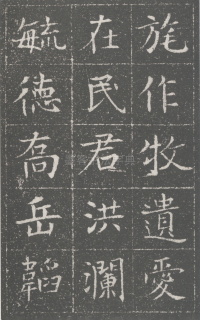 旄作牧遺愛
在民君洪瀾
毓德喬岳韜